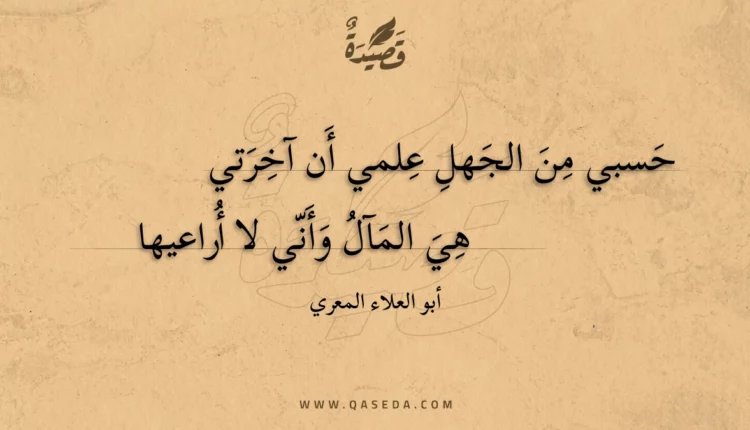 قَصِيدَةٌ
حَسبي مِنَ الجَهلِ عِلمي أَن آخِرَتي
هِيَ المَآلُ وَأَنّي لا أُراعيها
أبو العلاء المعري
WWW.QASEDA.COM